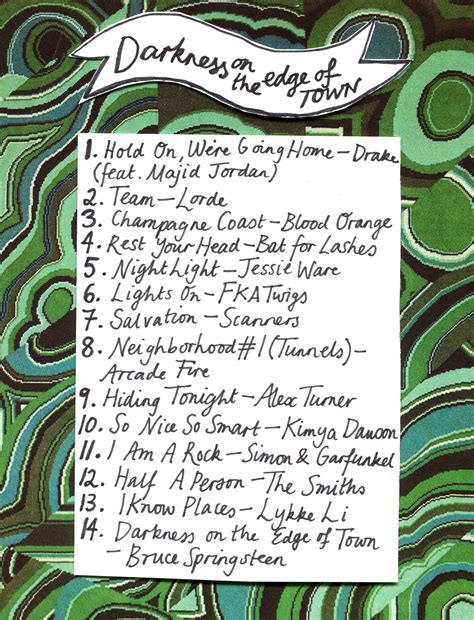 Darkness on
the edge of
TOWN
1. Hold On, We're Going Home – Drake
(feat. Majid Jordan)
2. Team – Lorde
3. Champagne Coast – Blood Orange
4. Rest Your Head – Bat for Lashes
5. Night Light – Jessie Ware
6. Lights On – FKA Twigs
7. Salvation – Scanners
8. Neighborhood #1 (Tunnels) –
Arcade Fire
9. Hiding Tonight – Alex Turner
10. So Nice So Smart – Kimya Dawson
11. I Am A Rock – Simon & Garfunkel
12. Half A Person – The Smiths
13. I Know Places – Lykke Li
14. Darkness on the Edge of Town
– Bruce Springsteen